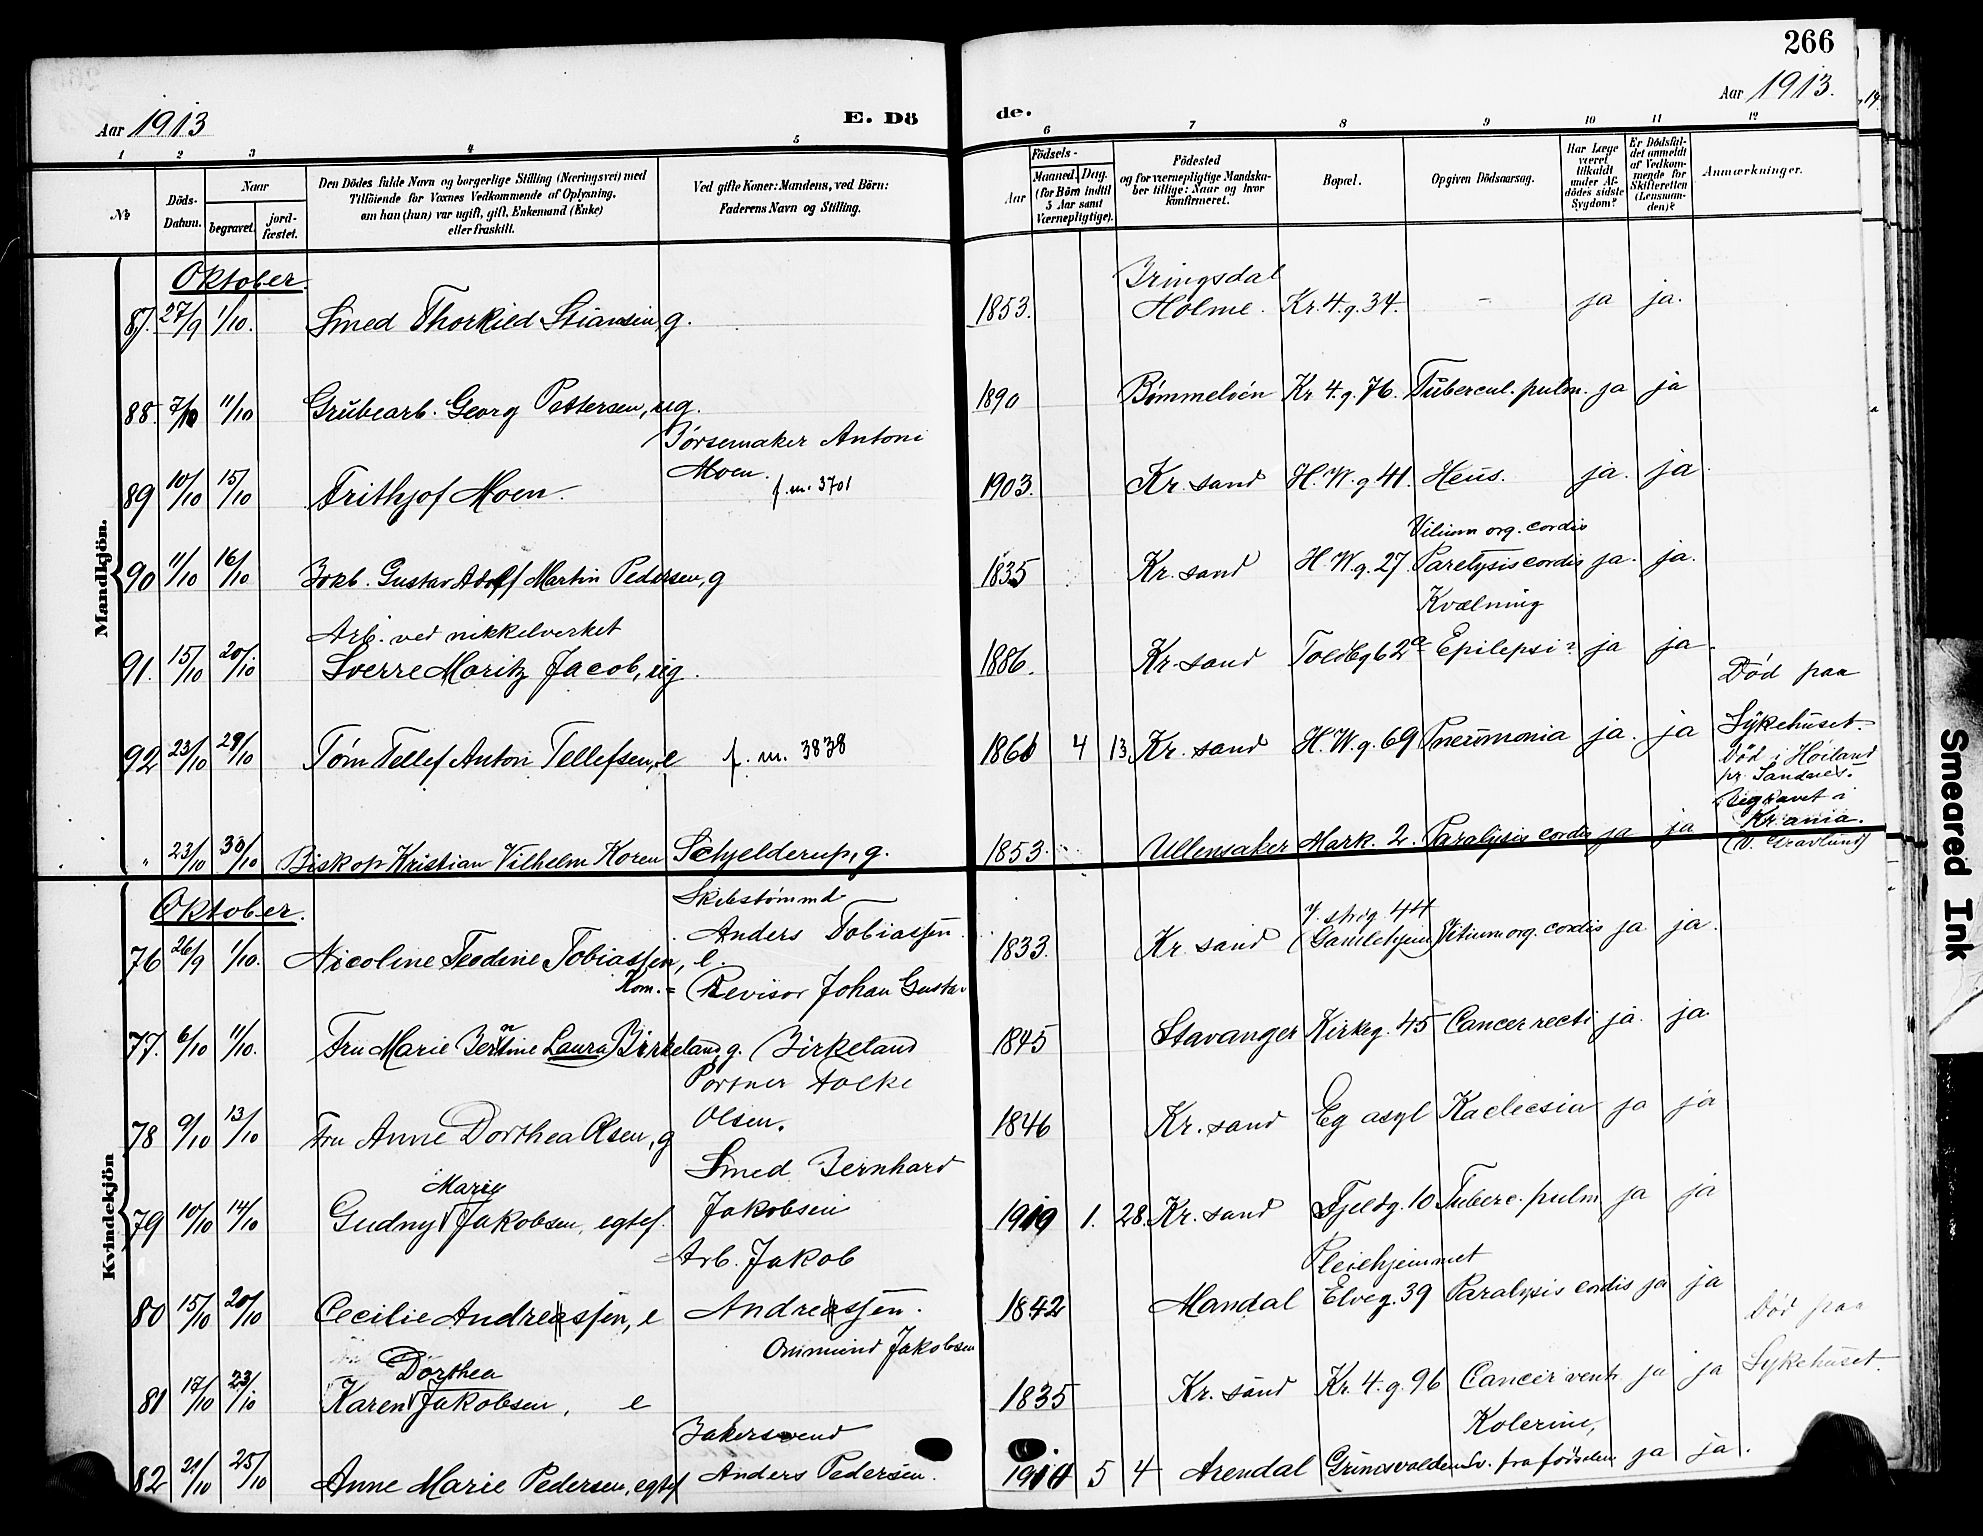 266
Aar 1913
E. Dö
de.
Aar 1913.
1 2 3 4 5 6 7 8 9 10 11 12
No
Döds-Datum.
Naar
begravet.
jord-fæstet.
Den Dödes fulde Navn og borgerlige Stilling (Næringsvei) med
Tilföiende for Voxnes Vedkommende af Oplysning,
om han (hun) var ugift, gift, Enkemand (Enke)
eller fraskilt.
Ved gifte Koner: Mandens, ved Börn:
Faderens Navn og Stilling.
Födsels-
Aar
Maaned. Dag.
(for Börn indtil
5 Aar samt
Værnepligtige).
Födested
og for værnepligtige Mandska-
ber tillige: Naar og hvor
konfirmeret.
Bopæl.
Opgiven Dödsaarsag.
Har Læge
været
tilkaldt
under Af-
dödes sidste
Sygdom?
Er Dödsfal-
det anmeldt
af Vedkom-
mende for
Skifteretten
(Lensman-
den)?
Anmærkninger.
Mandkjön.
Oktober.
87. 27/9 1/10. Smed Thorkild Stiansen, g. 1853. Iringsdal Holme. Kr. 4. g. 34. - ja ja.
88. 7/10 11/10 Grubearb. Georg Pettersen, ug. 1890 Bømmeløen Kr. 4. g. 76. Tubercul. pulm. ja ja
89 10/10 15/10 Frithjof Moen. Børsemaker Antoni Moen. f. m. 3701 1903. Kr. sand H. W. g 41. Heus. ja. ja.
90 11/10 16/10 Gustav Adolf Martin Pedersen, g 1835 Kr. sand H. W. g. 27. Vitium org. cordis Paralysis cordis ja. ja.
91. 15/10 20/10 Arb. ved nikkelverket Sverre Moritz Jacob, ug. 1886. Kr. sand Toldbg 62a Kvælning Epilepsi? ja ja.
92 23/10 29/10 Tøm. Tellef Anton Tellefsen, e f. m. 3838 1861 4 13. Kr. sand H. W. g. 69 Pneumonia ja. ja Død paa Sykehuset.
" 23/10 30/10 Biskop Kristian Vilhelm Koren Schjelderup, g. 1853. Ullensaker Mark. 2. Paralysis cordis ja ja Død i Høiland pr. Sandnes. Begravet i Kr.ania. (V. Gravlund)
Kvindekjön
Oktober.
76 26/9 1/10. Nicoline Teodine Tobiassen, e. Skibstømmd Anders Tobiassen. 1833. Kr. sand 7. strg. 44 (Gamlehjem) Vitium org. cordis ja ja.
77. 6/10 11/10. Fru Marie Berntine Laura Birkeland, g. Kom. = Revisor Johan Gustav Birkeland 1845 Stavanger Kirkeg. 45 Cancer recti ja. ja
78 9/10 13/10 Fru Anne Dorthea Olsen, g Portner Tolke Olsen. 1846 Kr. sand Eg asyl ja ja
79 10/10 14/10 Gudny Marie Jakobsen, egtef. Smed Bernhard Jakobsen 1909 1. 28. Kr. sand Fjeldg. 10 Tuberc. pulm. ja ja
80 15/10 20/10 Cecilie Andreassen, e Arb. Jakob Andreassen. 1842 Mandal Pleiehjemmet Elveg. 39 Paralysis cordis ja ja
81 17/10 23/10 Karen Dorthea Jakobsen, e Jakobsen 1835 Kr. sand Kr. 4. g. 96 Cancer ventr. ja ja Død paa Sykehuset.
82 21/10 25/10 Anne Marie Pedersen, egtef Bakersvend Anders Pedersen. 1910 5 4 Arendal Kolerine, Sv. fra fødselen ja ja.
Smeared Ink